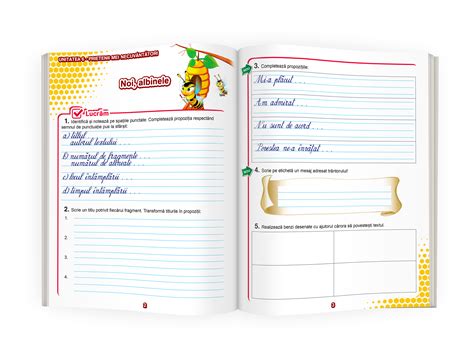 UNITATEA 5 - PRIETENII MEI NECUVÂNTĂTORI
Noi, albinele
Lucrăm
1. Identifică și notează pe spațiile punctate. Completează propoziția respectând
semnul de punctuație pus la sfârșit.
a) titlul
autorul textului ...
b) numărul de fragmente ...
numărul de alineate ...
c) locul întâmplării ...
d) timpul întâmplării ...
2. Scrie un titlu potrivit fiecărui fragment. Transformă titlurile în propoziții.
1.
2.
3.
4.
3. Completează propozițiile.
Mi-a plăcut ...
Am admirat ...
Nu sunt de acord ...
Povestea ne-a învățat ...
4. Scrie pe etichetă un mesaj adresat trântorului!
5. Realizează benzi desenate cu ajutorul cărora să povestești textul.